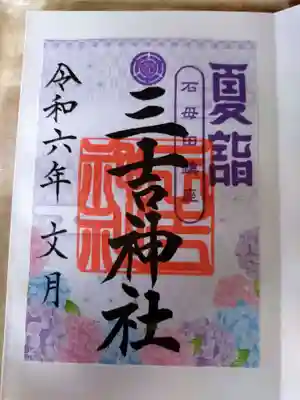 夏詣
石母田鎮座
三吉神社
令和六年 文月